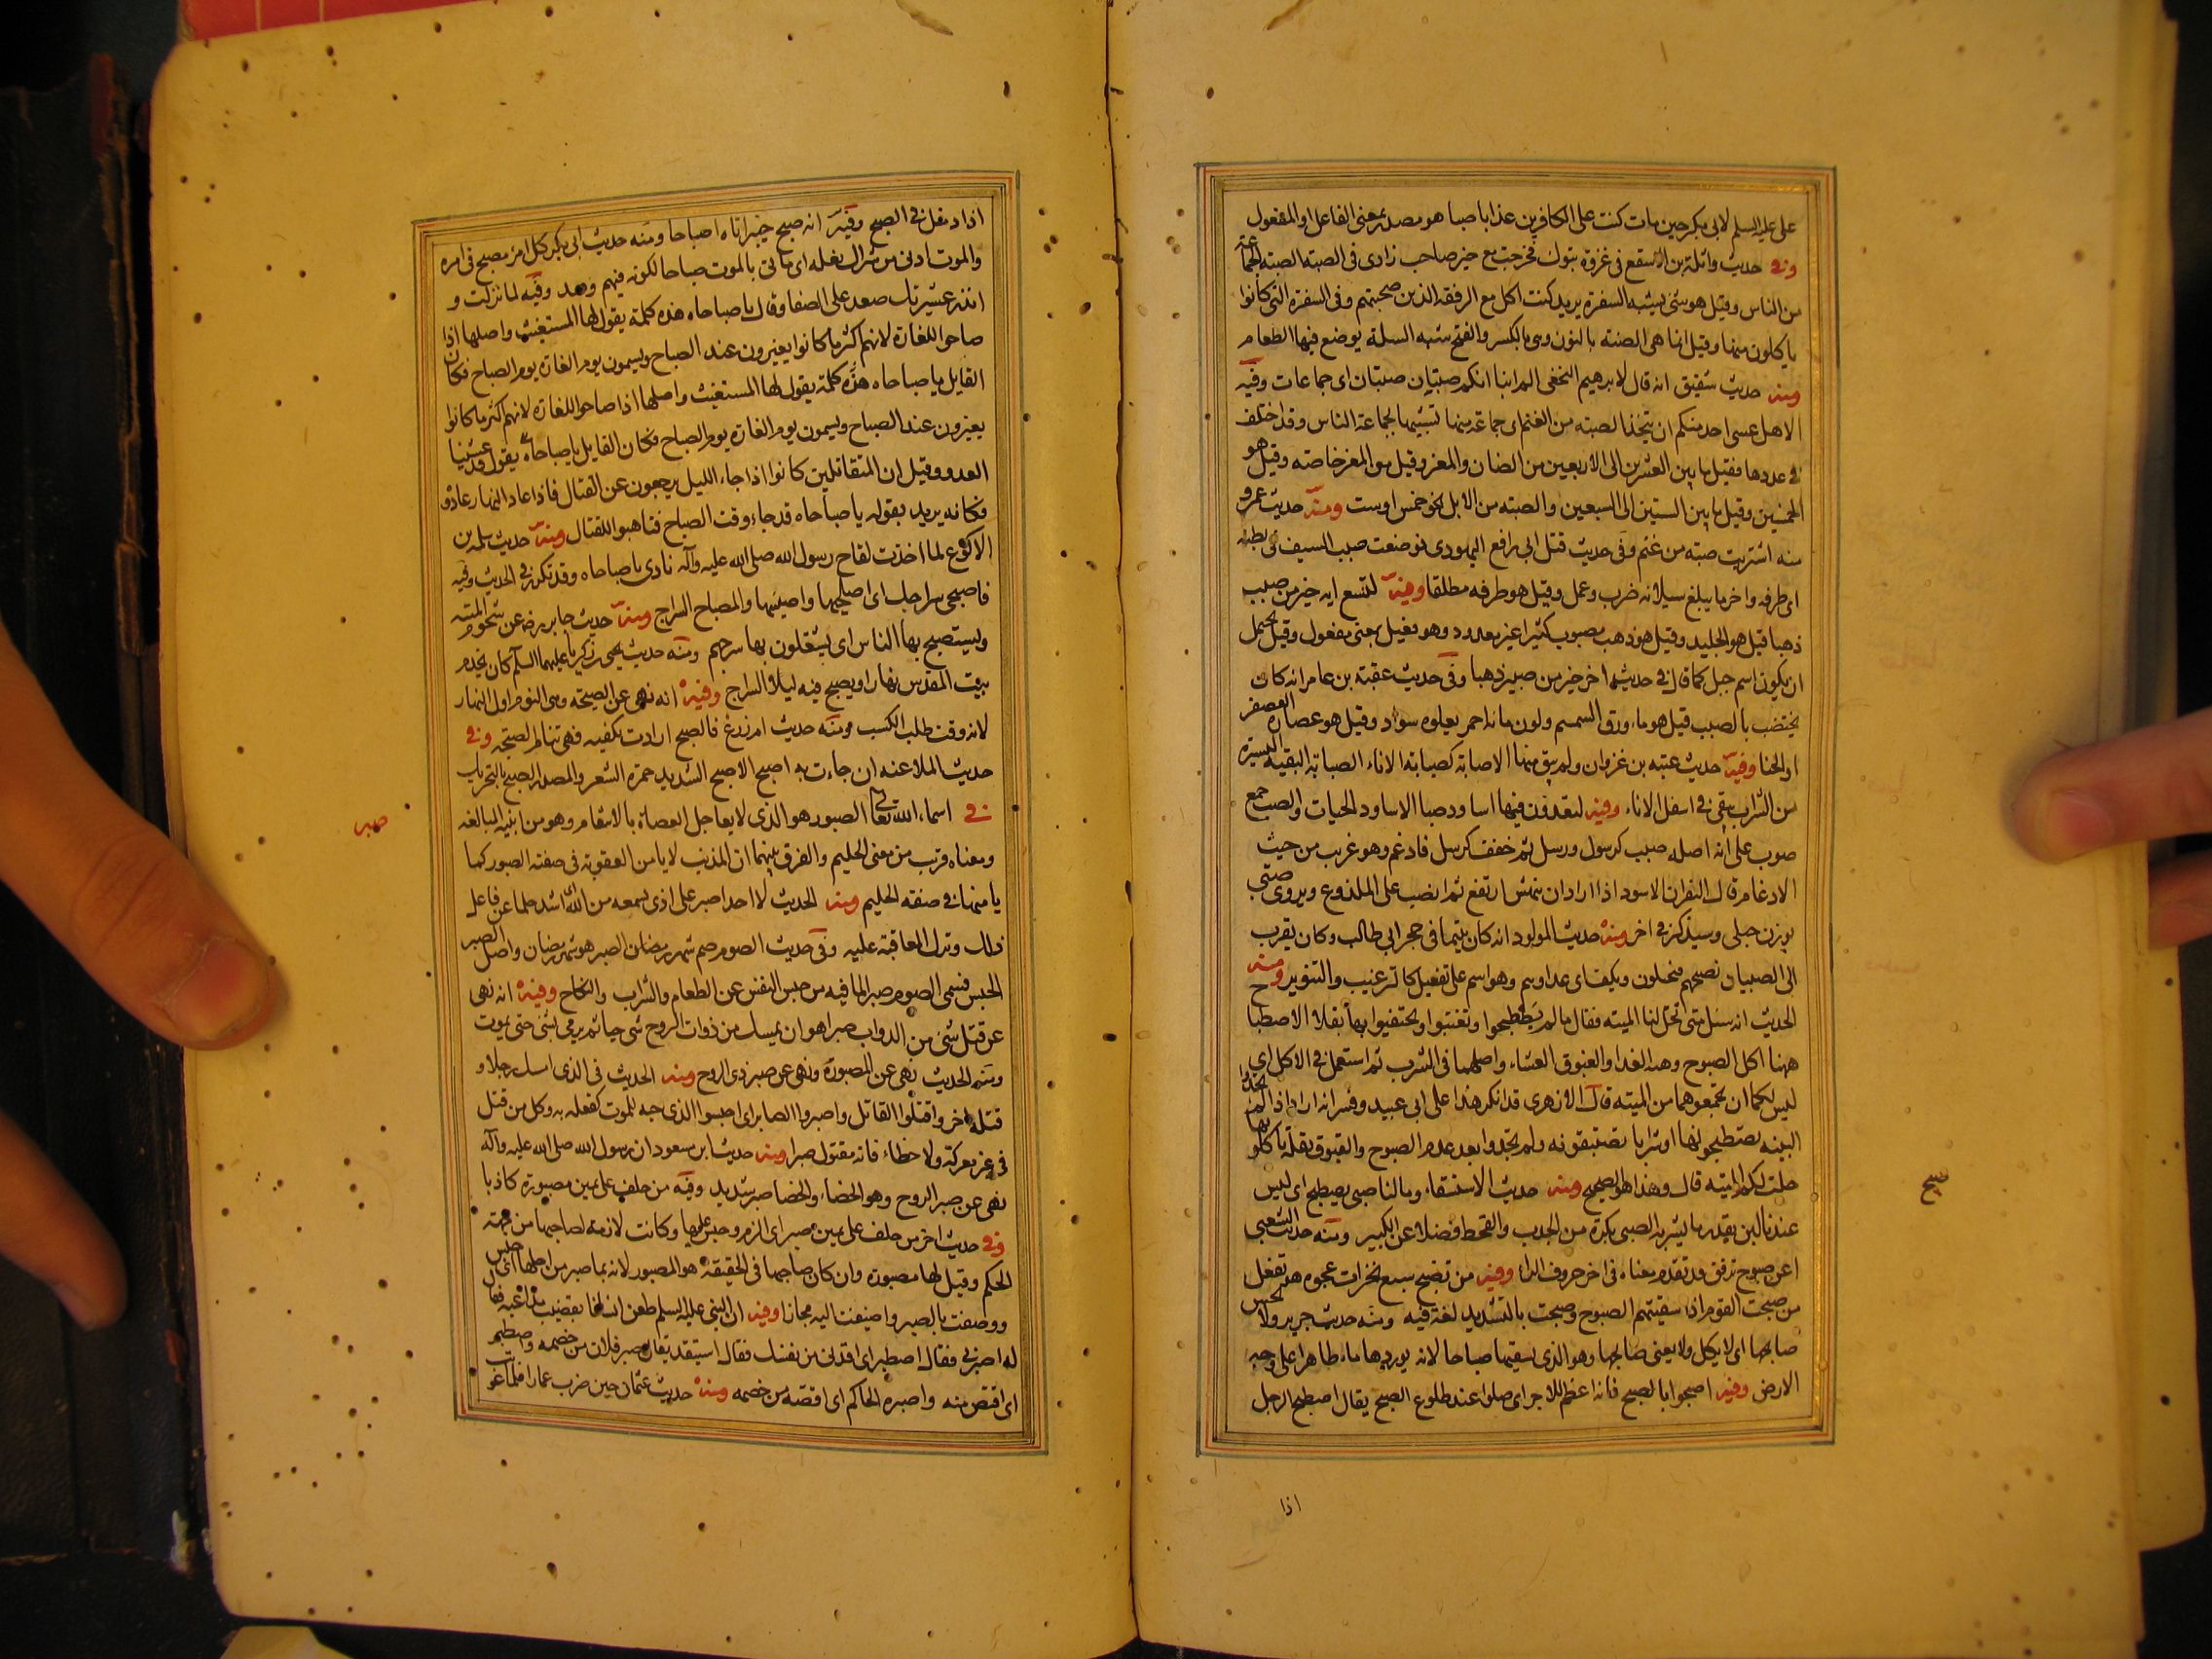 على عليه السلم لابى بكر حين مات كنت على الكافرين عذابا صبا هو مصدر بمعنى الفاعل او المفعول
وفى حديث واثلة بن الاسقع فى غزوة تبوك فخرجت مع خير صاحب زادى فى الصبة الصبة الجماعة
من الناس وقيل هو شئ يشبه السفرة يريد كنت اكل مع الرفقة الذين صحبتهم وفى السفرة التى كانوا
ياكلون منها وقيل انما هى الصنة بالنون وهى بالكسر والفتح شبه السلة يوضع فيها الطعام
ومنه حديث شقيق انه قال لابرهيم النخعى الم انبا انكم صبتان صبتان اى جماعات وفيه
الا هل عسى احد منكم ان يتخذ الصبة من الغنم اى جماعة منها تشبيها بجماعة الناس وقد اختلف
فى عددها فقيل ما بين العشرين الى الاربعين من الضان والمعز وقيل من المعز خاصة وقيل هو
الخمسين وقيل ما بين الستين الى السبعين والصبة من الابل نحو خمس او ست ومنه حديث عمر و
منه اشتريت صبة من غنم وفى حديث قتل ابى رافع اليهودى فوضعت صبيب السيف فى بطنه
اى طرفه واخر ما يبلغ سيلانه ضرب وعمل وقيل هو طرفه مطلقا وفيه لتسع اية خير من صبيب
ذهبا قيل هو الجليد وقيل هو ذهب مصبوب كثيرا غير معدود وهو فعيل بمعنى مفعول وقيل يحتمل
ان يكون اسم جبل كما قال فى حديث اخر خير من صبير ذهبا وفى حديث عقبة بن عامر انه كان
يختضب بالصبيب قيل هو ماء ورق السمسم ولون مائه احمر يعلوه سواد وقيل هو عصارة العصفر
او الحنا وفيه حديث عتبة بن غزوان ولم يبق منها الا صبابة كصبابة الاناء الصبابة البقية اليسيرة
من الشراب يبقى فى اسفل الاناء وفيه لتعودن فيها اساود صبا الاساود الحيات والصب جمع
صبوب على انه اصله صبب كرسول ورسل ثم خفف كرسل فادغم وهو غريب من حيث
الادغام قال النضر ان الاسود اذا اراد ان ينهش ارتفع ثم انصب على الملدوغ ويروى صبى
بوزن حبلى وسيذكر فى اخر ومنه حديث المولود انه كان يتيما فى حجر ابى طالب وكان يقرب
الى الصبيان تصبيحهم فيختلسون ويكف اى غداؤهم وهو اسم على تفعيل كالترعيب والتنوير ومنه
الحديث انه سئل متى تحل لنا الميتة فقال ما لم تصطبحوا وتغتبقوا او تحتفيوا بها بقلا الاصطبا
ههنا اكل الصبوح وهو الغداء والغبوق العشاء واصلهما فى الشرب ثم استعمل فى الاكل اى
ليس لكم ان تجمعوهما من الميتة قال الازهرى قد انكر هذا على ابى عبيد وفسر انه اراد اذا لم تجدوا
لبينة تصطبحونها او شرابا تغتبقونه ولم تجدوا بعد عدم الصبوح والغبوق بقلة تاكلونها
حلت لكم الميتة قال وهذا هو الصحيح ومنه حديث الاستسقاء وما لنا صبى يصطبح اى ليس
عندنا لبن بقدر ما يشربه الصبى بكرة من الجدب والقحط فضلا عن الكبير ومنه حديث الشعبى
اعن صبوح ترقق وقد تقدم معناه فى اخر حروف الراء وفيه من تصبح سبع تمرات عجوة هو تفعل
من صبحت القوم اذا سقيتهم الصبوح وصبحت بالتشديد لغة فيه ومنه حديث جرير ولا يحسر
صابحها اى لا يكل ولا يعيى صابحها وهو الذى يسقيها صباحا لانه يوردها ماء ظاهرا على وجه
الارض وفيه اصبحوا بالصبح فانه اعظم للاجر اى صلوا عند طلوع الصبح يقال اصبح الرجل
صبح
اذا
اذا دخل فى الصبح وفيه انه صبح خيبر اتاها صباحا ومنه حديث ابى بكر كل امرئ مصبح فى اهله
والموت ادنى من شراك نعله اى ماتى بالموت صباحا لكونه فيهم وفيه لما نزلت و
انذر عشيرتك صعد على الصفا وقال يا صباحاه هذه كلمة يقولها المستغيث واصلها اذا
صاحوا للغارة لانهم اكثر ما كانوا يغيرون عند الصباح ويسمون يوم الغارة يوم الصباح فكان
القايل يا صباحاه هذه كلمة يقولها المستغيث واصلها اذا صاحوا للغارة لانهم اكثر ما كانوا
يغيرون عند الصباح ويسمون يوم الغارة يوم الصباح فكان القايل يا صباحاه يقول قد غشينا
العدو وقيل ان المتقاتلين كانوا اذا جاء الليل يرجعون عن القتال فاذا عاد النهار عادوا
فكانه يريد بقوله يا صباحاه قد جاء وقت الصباح فتاهبوا للقتال ومنه حديث سلمة بن
الاكوع لما اخذت لقاح رسول الله صلى الله عليه وآله نادى يا صباحاه وقد تكرر فى الحديث وفيه
فاصبحى سراجك اى اصلحيها واضيئيها والمصباح السراج ومنه حديث جابر رضه عن شحوم الميتة
ويستصبح بها الناس اى يشعلون بها سرجهم ومنه حديث يحيى بن زكريا عليهما السلم كان يخدم
بيت المقدس نهارا ويصبح فيه ليلا السراج وفيه انه نهى عن الصبحة وهى النوم اول النهار
لانه وقت طلب الكسب ومنه حديث ام زرع فاتصبح ارادت مكفية فهى تنام الصبحة وفى
حديث الملاعنة ان جاءت به اصبح الاصبح الشديد حمرة الشعر والمصدر الصبح بالتحريك
فى اسماء الله تعالى الصبور هو الذى لا يعاجل العصاة بالانتقام وهو من ابنية المبالغة
ومعناه قريب من معنى الحليم والفرق بينهما ان المذنب لا يامن العقوبة فى صفة الصبور كما
يامنها فى صفة الحليم ومنه الحديث لا احد اصبر على اذى يسمعه من الله اى اشد حلما عن فاعل
ذلك وترك المعاقبة عليه وفى حديث الصوم صم شهر رمضان الصبر هو شهر رمضان واصل الصبر
الحبس فسمى الصوم صبرا لما فيه من حبس النفس عن الطعام والشراب والنكاح وفيه انه نهى
عن قتل شئ من الدواب صبرا هو ان يمسك من ذوات الروح شئ حيا ثم يرمى بشئ حتى يموت
ومنه الحديث نهى عن المصبورة ونهى عن صبر ذى الروح ومنه الحديث فى الذى امسك رجلا و
قتله اخر واقتلوا القاتل واصبروا الصابر اى احبسوا الذى حبسه للموت كفعله به وكل من قتل
فى غير معركة ولا خطاء فانه مقتول صبرا ومنه حديث ابن مسعود ان رسول الله صلى الله عليه وآله
نهى عن صبر الروح وهو الخصاء والخصا صبر شديد وفيه من حلف على يمين مصبورة كاذبا
وفى حديث اخر من حلف على يمين صبر اى الزم وحبس عليها وكانت لازمة لصاحبها من جهة
الحكم وقيل لها مصبورة وان كان صاحبها فى الحقيقة هو المصبور لانه انما صبر من اجلها اى حبس
ووصفت بالصبر واضيفت اليه مجازا وفيه ان النبى عليه السلم طعن انسانا بقضيب مداعبة فقال
له اصبرنى فقال اصطبر اى اقدنى من نفسك فقال استقد يقال صبر فلان من خصمه واصطبر
اى اقتص منه واصبره الحاكم اى اقصه من خصمه ومنه حديث عثمان حين ضرب عمارا فلما عوتب
صبر